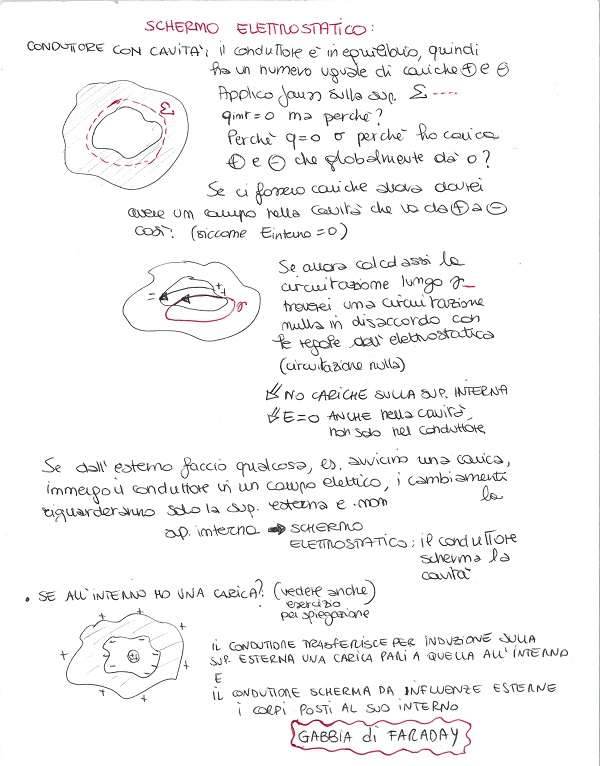 SCHERMO ELETTROSTATICO:
CONDUTTORE CON CAVITA': il conduttore è in equilibrio, quindi
ha un numero uguale di cariche ⊕ e ⊖
Applico Gauss sulla sup. Σ ----
qint = 0 ma perchè?
Σ
Perchè q=0 o perchè ho carica
⊕ e ⊖ che globalmente dà 0?
Se ci fossero cariche allora dovrei
avere un campo nella cavità che va da ⊕ a ⊖
così: (siccome Einterno = 0)
Se allora calcolassi la
circuitazione lungo γ_
troverei una circuitazione
γ
nulla in disaccordo con
le regole dell'elettrostatica
(circuitazione nulla)
NO CARICHE SULLA SUP. INTERNA
E=0 ANCHE nella cavità,
non solo nel conduttore
Se dall'esterno faccio qualcosa, es. avvicino una carica,
immergo il conduttore in un campo elettrico, i cambiamenti
riguarderanno solo la sup. esterna e non la
sup. interna ➡ SCHERMO
ELETTROSTATICO: il conduttore
scherma la
cavità
• SE ALL'INTERNO HO UNA CARICA? (vedere anche)
esercizio
per spiegazione
IL CONDUTTORE TRASFERISCE PER INDUZIONE SULLA
SUP. ESTERNA UNA CARICA PARI A QUELLA ALL'INTERNO
E
IL CONDUTTORE SCHERMA DA INFLUENZE ESTERNE
I CORPI POSTI AL SUO INTERNO
GABBIA di FARADAY